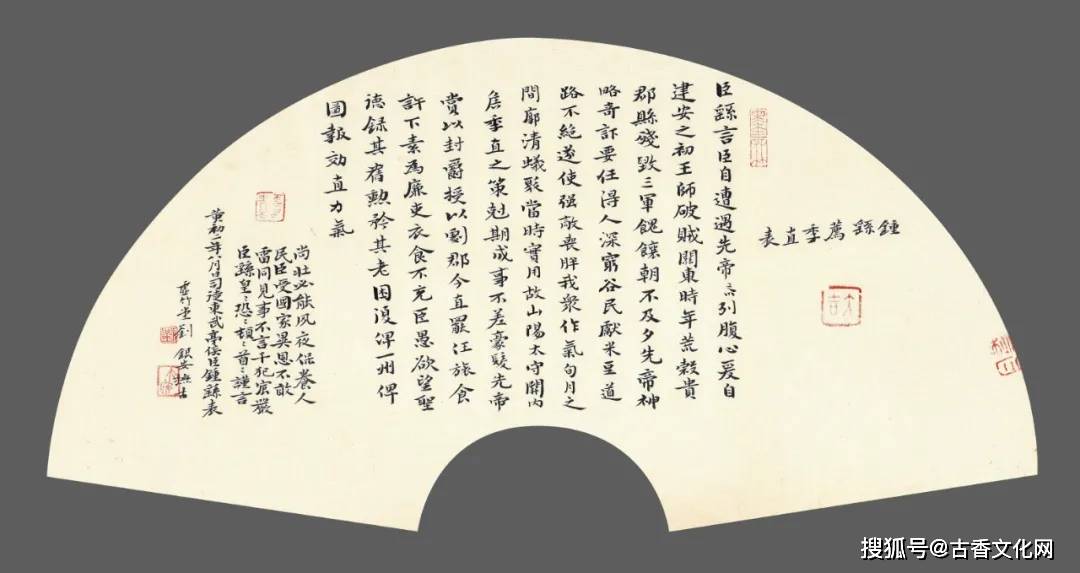 鍾繇薦季直表
臣繇言臣自遭遇先帝忝列腹心爰自
建安之初王師破賊關東時年荒穀貴
郡縣殘毀三軍餽饟朝不及夕先帝神
略奇計要任得人深窮谷民獻米豆道
路不絕遂使强敵喪胖我衆作氣旬月之
間廓清蟻聚當時實用故山陽太守關内
侯季直之策尅期成事不差豪髮先帝
賞以封爵授以劇郡今直罷任旅食
許下素為廉吏衣食不充臣愚欲望聖
德録其舊勲矜其老困復俾一州俾
圖報効直力氣
尚壯必能夙夜保養人
民臣受國家異恩不敢
雷同見事不言干犯宸嚴
臣繇皇〻恐〻頓〻首〻謹言
黄初二年八月日司徒東武亭侯臣鍾繇表
竹堂劉銀安
搜狐号@古香文化网